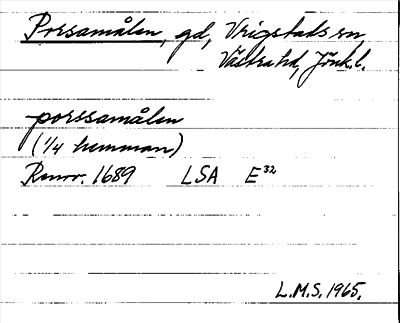 Porsamålen, gd, Vrigstads sn
Västra hd, Jönk.l.
porssamålen
(1/4 hemman)
Renov. 1689 LSA E 32
L.M.S. 1965.